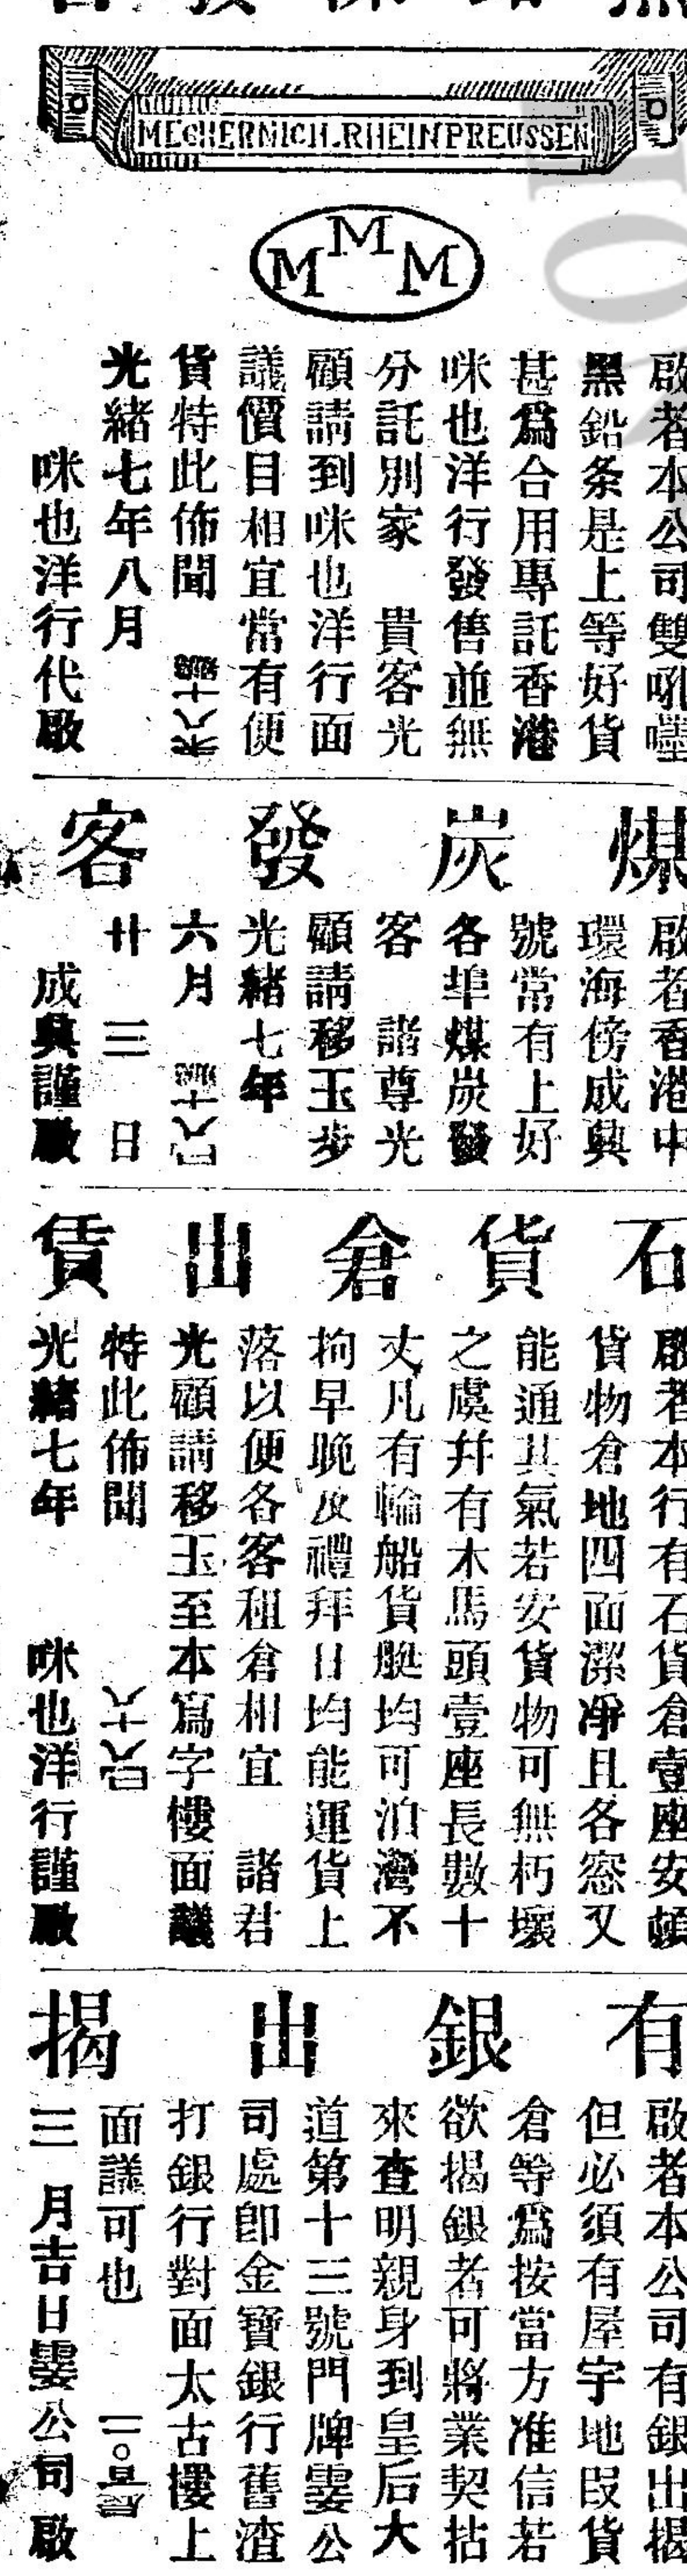 MECHERNICH.RHEINPREUSSEN
M M M
啟者本公司雙吼嚜
黑鉛条是上等好貨
甚爲合用專託香港
咪也洋行發售並無
分託別家 貴客光
顧請到咪也洋行面
議價目相宜常有便
貨特此佈聞
光緒七年八月
咪也洋行代啟
煤炭發客
啟者香港中
環海傍成興
號常有上好
各埠煤炭發
客 諸尊光
顧請移玉步
光緒七年
六月
廿三日
成興謹啟
石貨倉出賃
啟者本行有石貨倉壹座安頓
貨物倉地四面潔凈且各窓又
能通其氣若安貨物可無朽壞
之虞并有木馬頭壹座長數十
丈凡有輪船貨艇均可泊灣不
拘早晚及禮拜日均能運貨上
落以便各客租倉相宜 諸君
光顧請移玉至本寫字樓面議
特此佈聞
光緒七年 咪也洋行謹啟
有銀出揭
啟者本公司有銀出揭
但必須有屋宇地段貨
倉等爲按當方准信若
欲揭銀者可將業契拈
來查明親身到皇后大
道第十三號門牌霎公
司處卽金寶銀行舊渣
打銀行對面太古樓上
面議可也
三月吉日霎公司啟